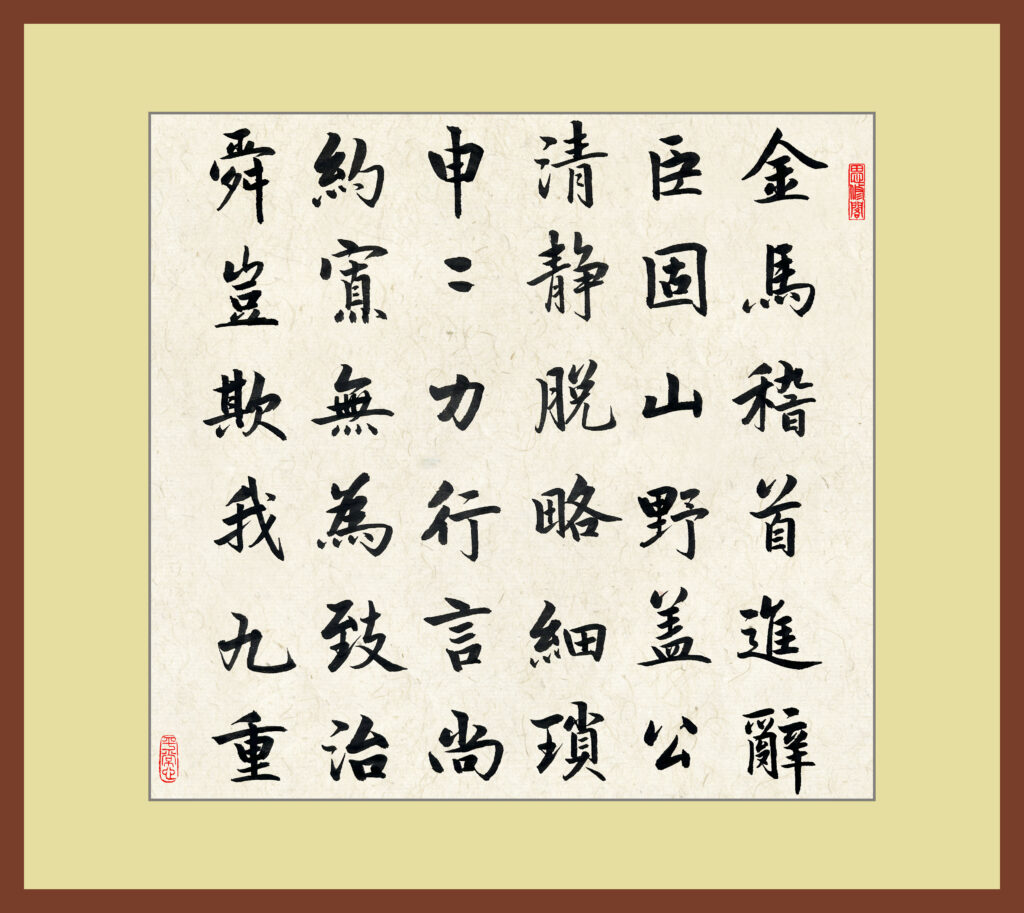 思修閣
金馬稽首進辭
臣固山野盖公
清静脱略細瑣
申二力行言尚
約寡無為致治
舜豈欺我九重